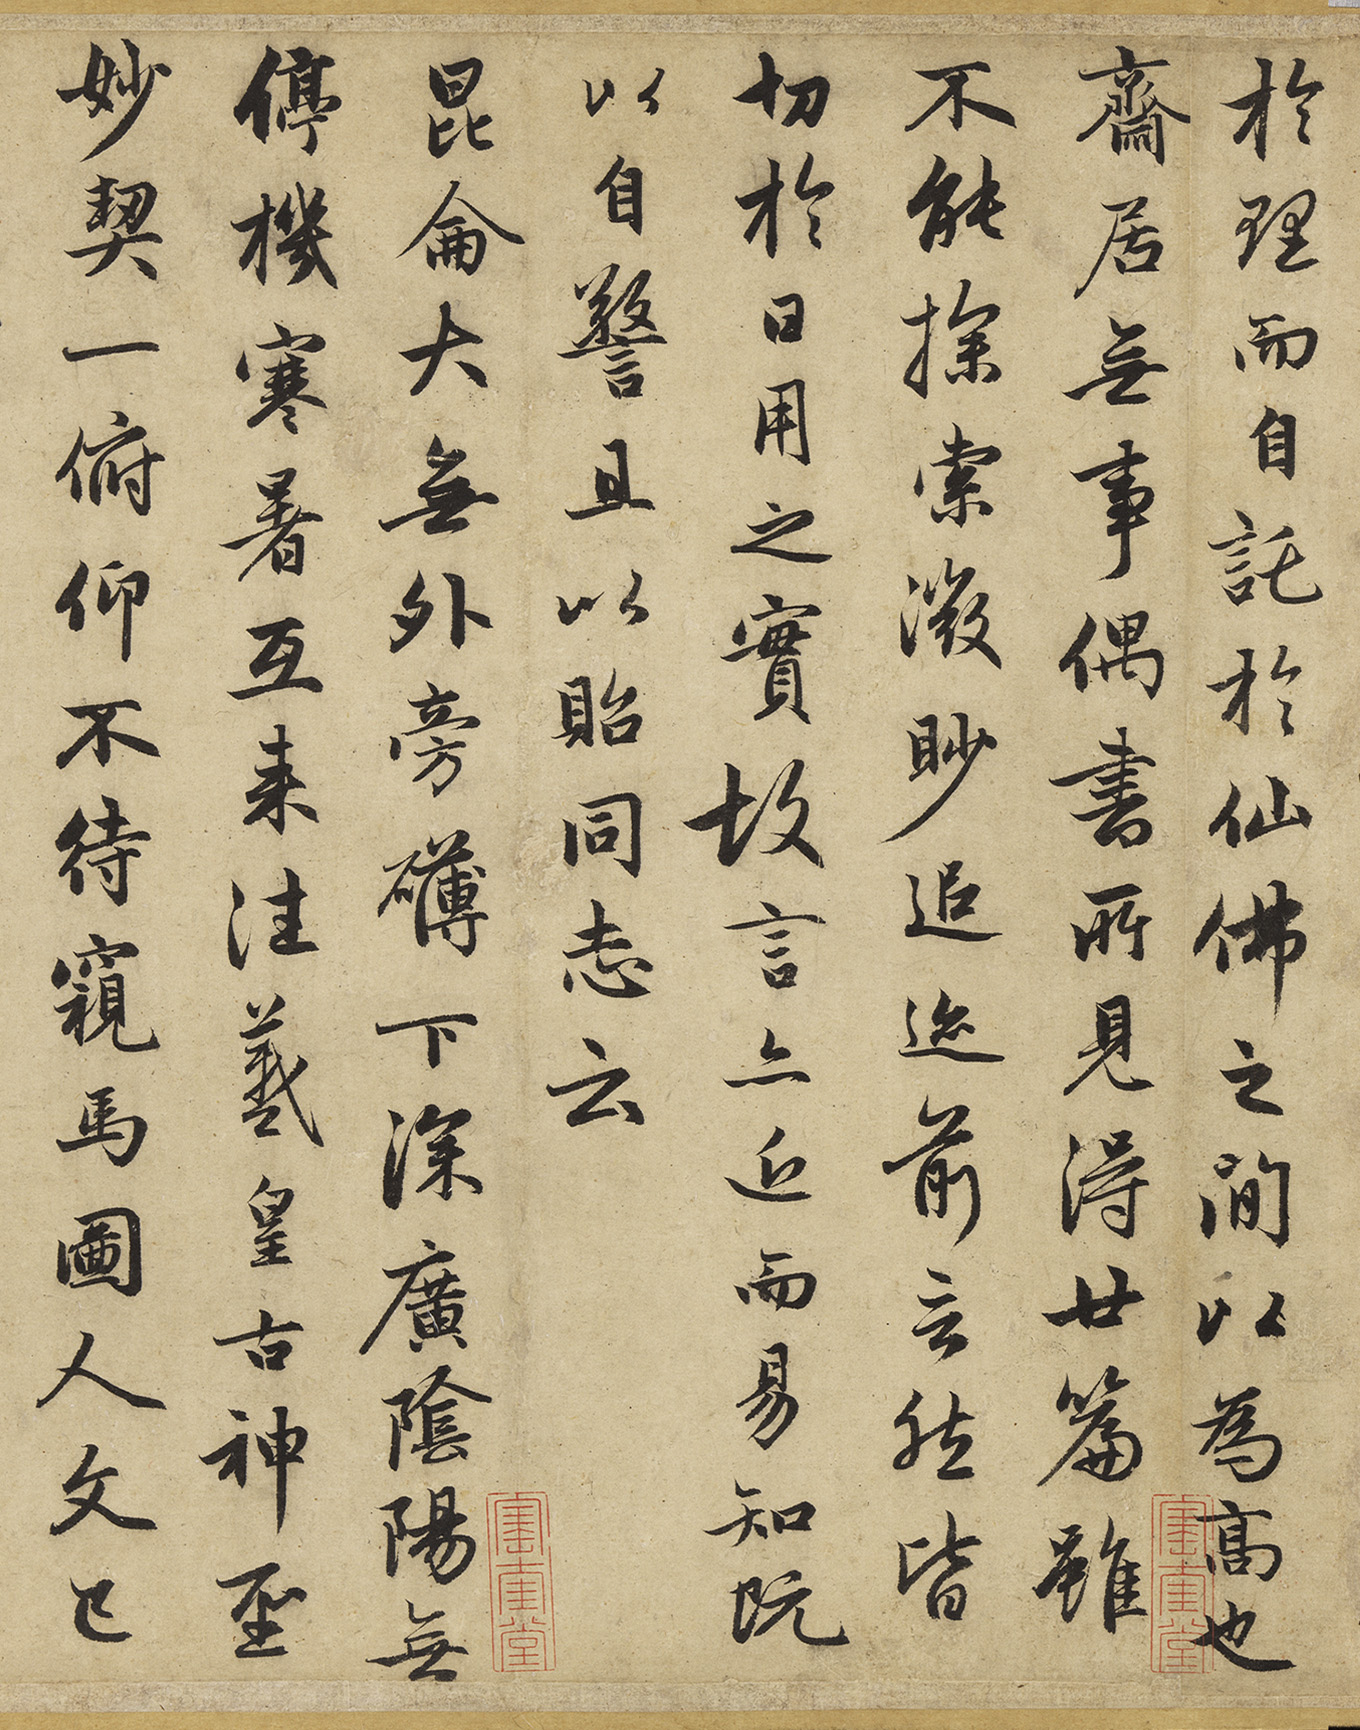 於理而自託於仙佛之間以為高也
齋居無事偶書所見得廿篇雖
不能探索微眇追迹前言然皆
切於日用之實故言亦近而易知既
以自警且以貽同志云
昆侖大無外旁礴下深廣陰陽無
停機寒暑互来往羲皇古神聖
妙契一俯仰不待窺馬圖人文已